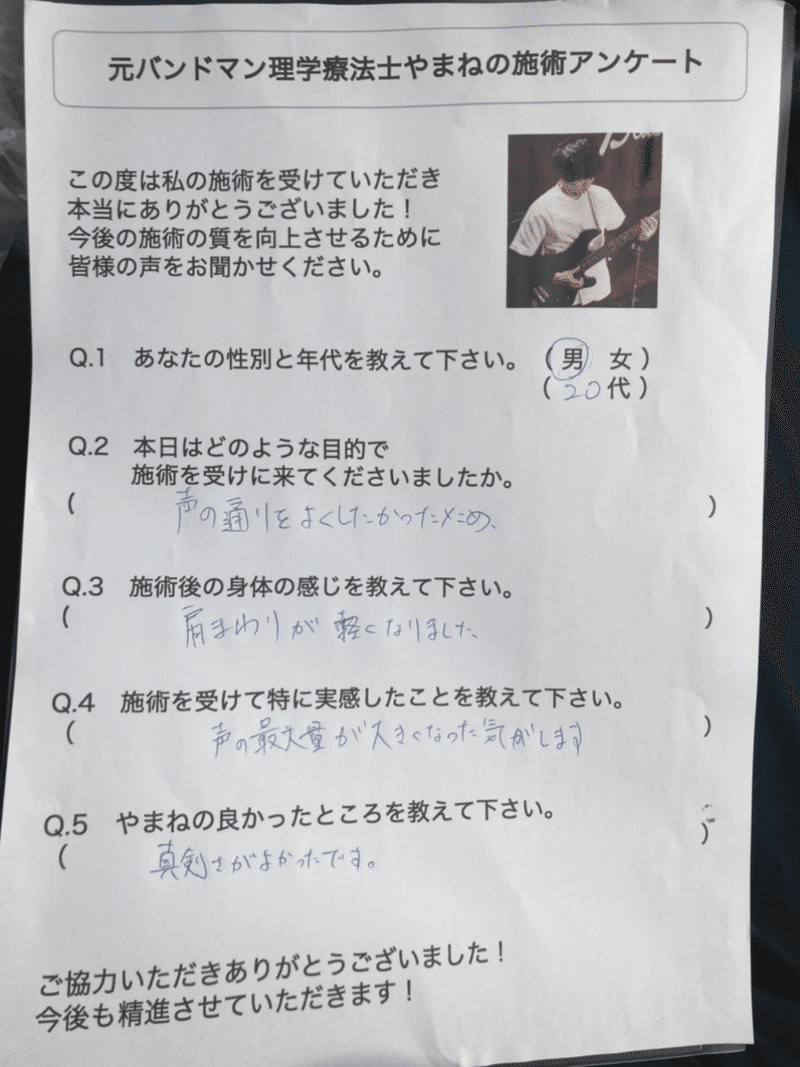 元バンドマン理学療法士やまねの施術アンケート
この度は私の施術を受けていただき
本当にありがとうございました！
今後の施術の質を向上させるために
皆様の声をお聞かせください。
Q.1 あなたの性別と年代を教えて下さい。（男 女）
（20代）
Q.2 本日はどのような目的で
施術を受けに来てくださいましたか。
（声の通りをよくしたかったため、）
Q.3 施術後の身体の感じを教えて下さい。
（肩まわりが軽くなりました、）
Q.4 施術を受けて特に実感したことを教えて下さい。
（声の最大量が大きくなった気がします）
Q.5 やまねの良かったところを教えて下さい。
（真剣さがよかったです。）
ご協力いただきありがとうございました！
今後も精進させていただきます！